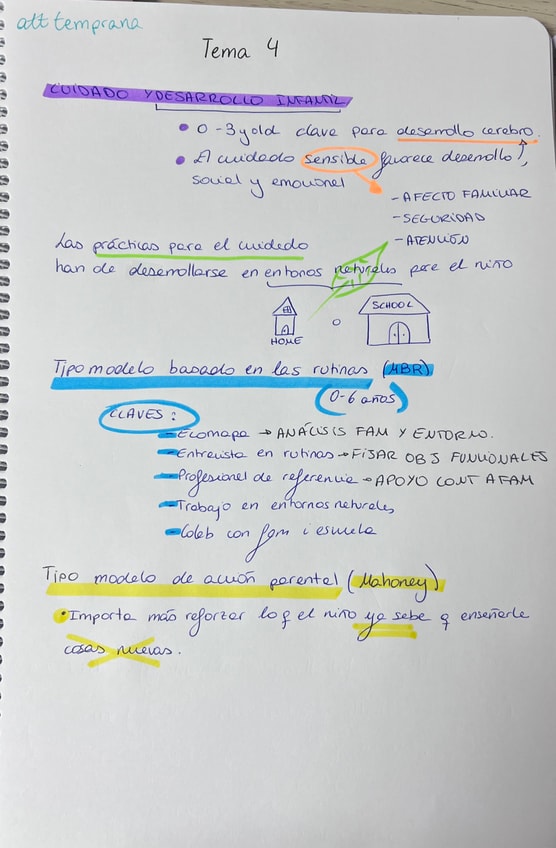 att temprana
Tema 4
CUIDADO Y DESARROLLO INFANTIL
0-3 y old clave para desarrollo cerebro.
El cuidado sensible favorece desarrollo,
social y emocional
- AFECTO FAMILIAR
- SEGURIDAD
- ATENCIÓN
Las prácticas para el cuidado
han de desarrollarse en entornos naturales para el niño
HOME o SCHOOL
Tipo modelo basado en las rutinas (MBR)
(0-6 años)
CLAVES:
- Ecomapa → ANÁLISIS FAM Y ENTORNO.
- Entrevista en rutinas → FIJAR OBJ FUNCIONALES
- Profesional de referencia → APOYO CONT A FAM
- Trabajo en entornos naturales,
- Colab con fam i escuela
Tipo modelo de acción parental (Mahoney)
Importa más reforzar lo q el niño ya sabe q enseñarle
cosas nuevas.